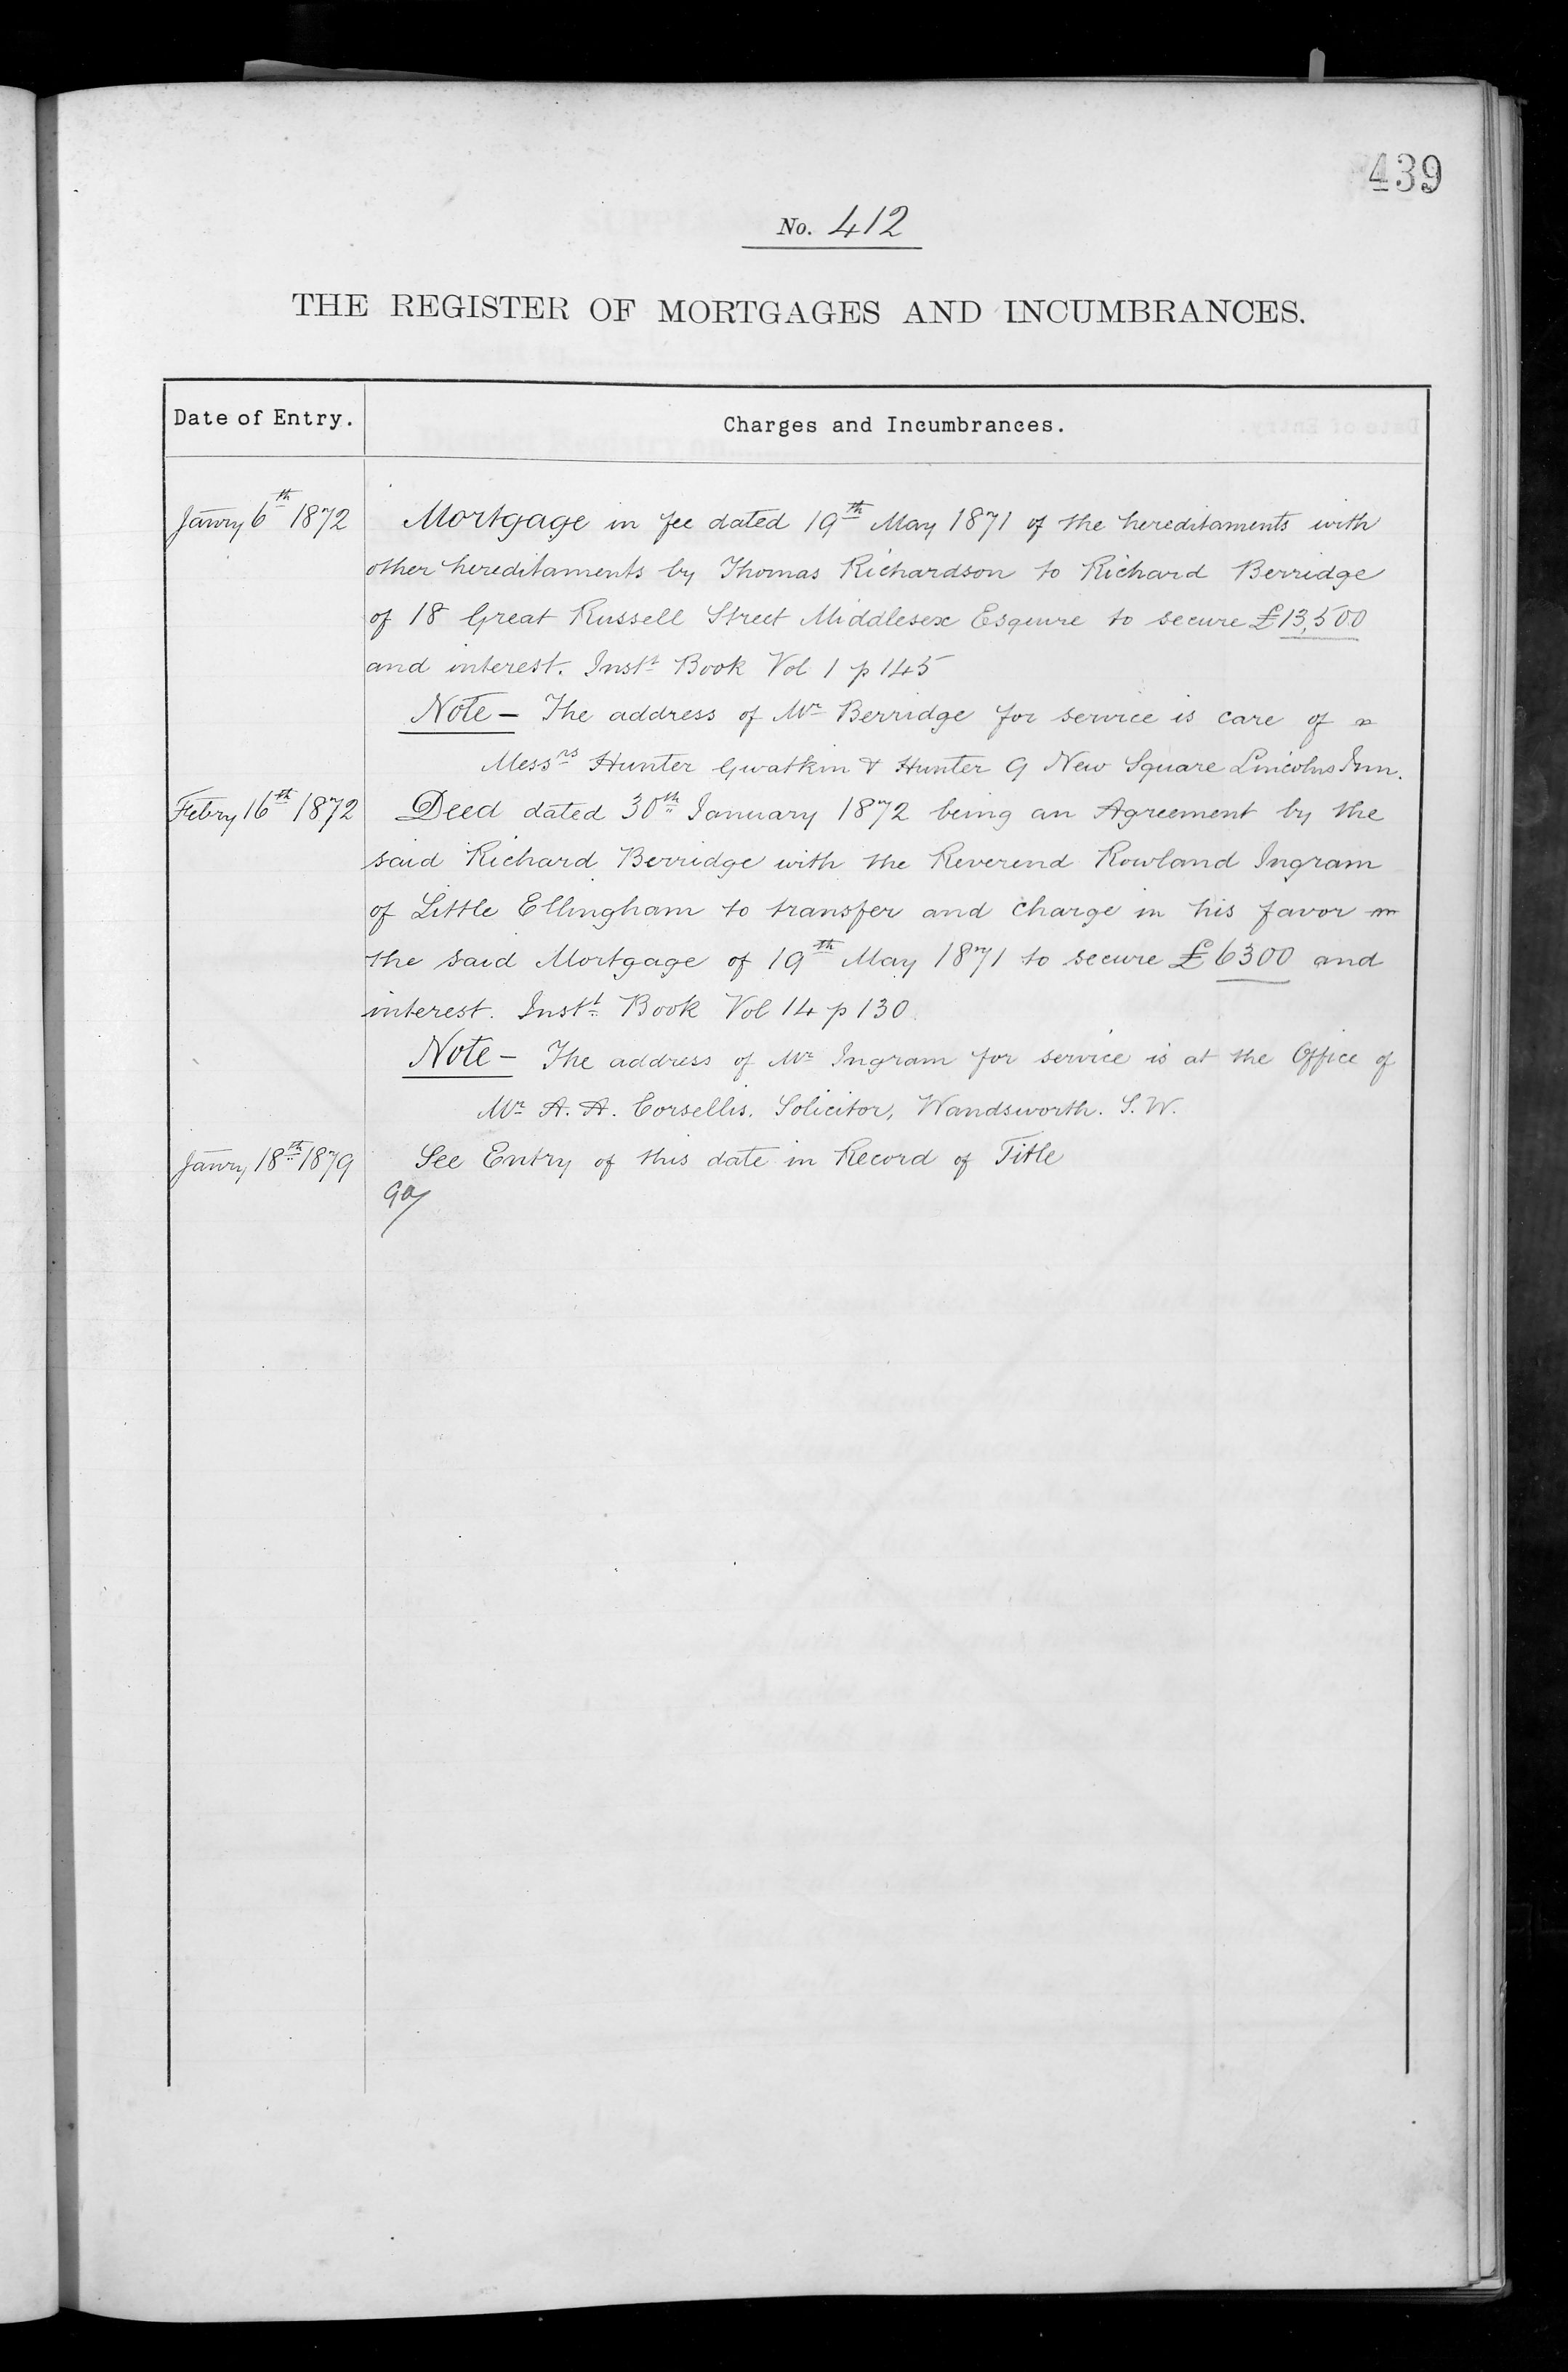 439
No. 412
THE REGISTER OF MORTGAGES AND INCUMBRANCES.
Date of Entry. Charges and Incumbrances.
Janry 6th 1872 Mortgage in fee dated 19th May 1871 of the hereditaments with
other hereditaments by Thomas Richardson to Richard Berridge
of 18 Great Russell Street Middlesex Esquire to secure £13,500
and interest. Instt Book Vol 1 p 145
Note – The address of Mr Berridge for service is care of
Messrs Hunter Gwatkin & Hunter 9 New Square Lincolns Inn.
Febry 16th 1872 Deed dated 30th January 1872 being an Agreement by the
said Richard Berridge with the Reverend Rowland Ingram
of Little Ellingham to transfer and charge in his favor
the said Mortgage of 19th May 1871 to secure £6300 and
interest. Instt Book Vol 14 p 130.
Note – The address of Mr Ingram for service is at the Office of
Mr A. A. Corsellis. Solicitor, Wandsworth. S.W.
Janry 18th 1879 See Entry of this date in Record of Title